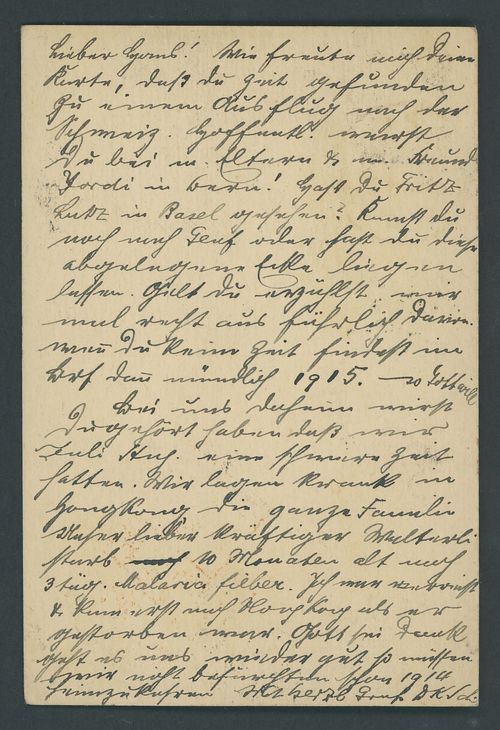 Lieber Hans! Wie freute mich Deine
Karte, daß du Zeit gefunden
Zu einem Ausflug nach der
Schweiz. Hoffentl. warst
Du bei m. Eltern & m. Freund
Jordi in Bern! Hast Du Fritz
Lutz in Basel gesehen? Kamst du
noch nach Genf oder hast du diese
abgelegene Ecke liegen
lassen. Gelt du erzählst mir
mal recht ausführlich davon.
wenn Du keine Zeit findest im
Brf dann mündlich 1915. so Gott will
Bei uns daheim wirst
Du gehört haben daß wir
Juli Aug. eine schwere Zeit
hatten. Wir lagen krank in
Hongkong die ganze Familie
Unser lieber kräftiger Walterli
starb 10 Monaten alt nach
3 täg. Malaria fieber. Ich war verreist
& kam erst nach Hongkong als er
gestorben war. Gott sei Dank
geht es uns wieder gut so müssen
wir nicht befürchten schon 1914
heimzukehren Mit herzl. Gruß